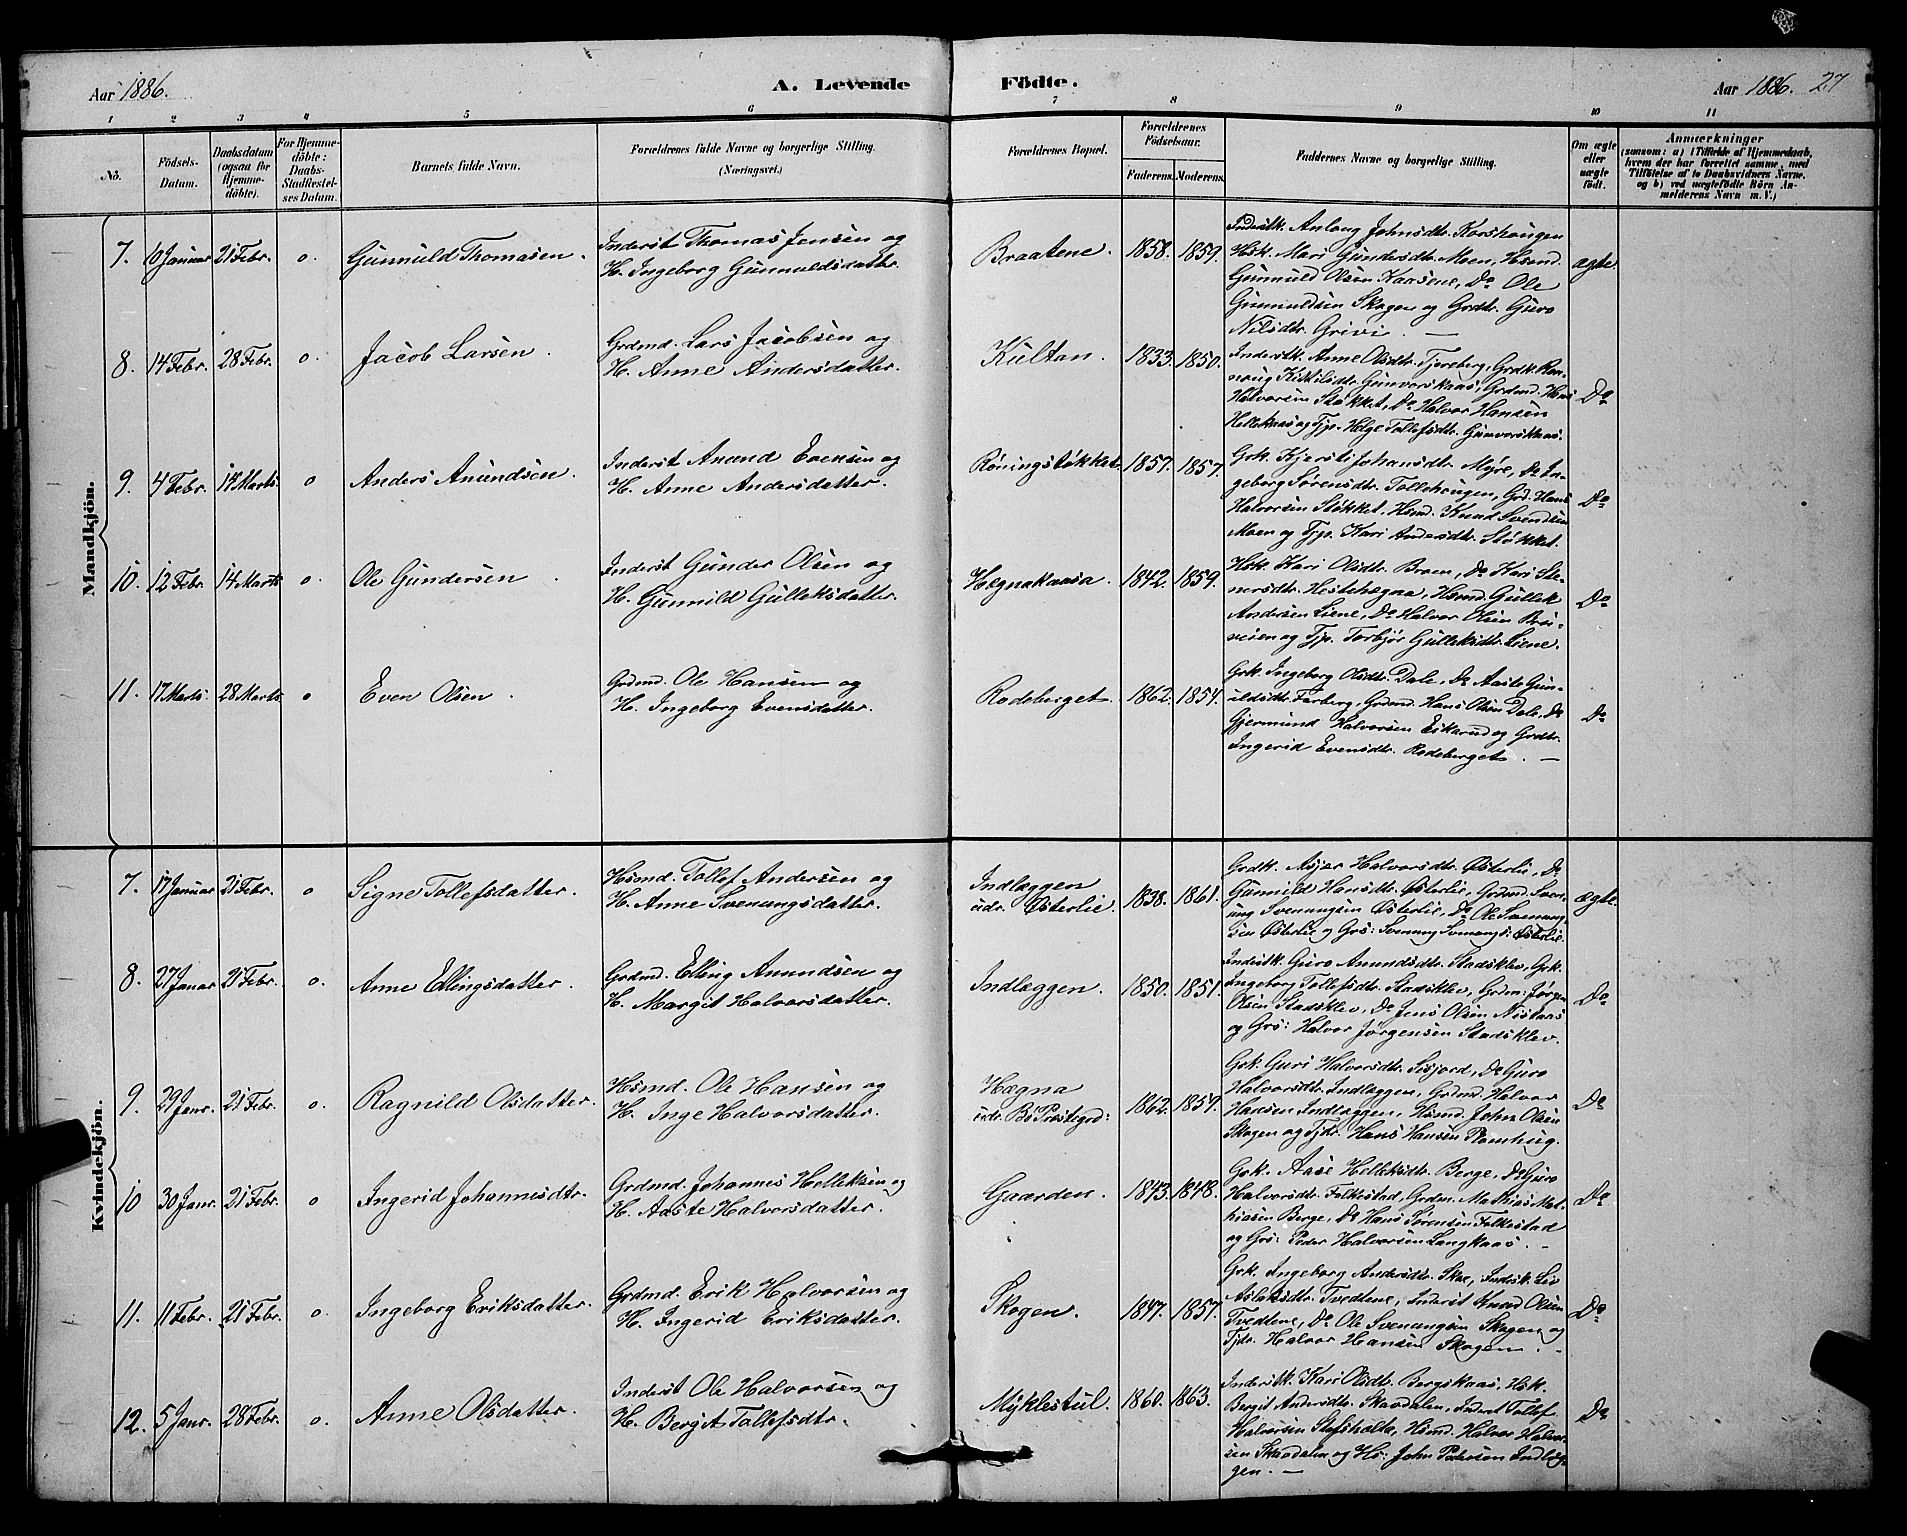 Aar 1886. A. Levende Födte. Aar 1886. 27
1 2 3 4 5 6 7 8 9 10 11
No. Födsels-Datum. Daabsdatum (ogsaa for Hjemmedöbte). For Hjemmedöbte: Daabs-Stadfæstelses Datum. Barnets fulde Navn. Forældrenes fulde Navne og borgerlige Stilling. (Næringsvei.) Forældrenes Bopæl. Forældrenes Födselsaar. Faderens. Moderens. Faddernes Navne og borgerlige Stilling. Om ægte eller uægte födt. Anmærkninger (saasom: a) i Tilfælde af Hjemmedaab, hvem der har forrettet samme, med Tilföielse af to Daabsvidners Navne. og b) ved uægtefödte Börn Anmelderens Navn m. V.)
Mandkjön.
7. 10 Januar 21 Febr. o. Gunnuld Thomasen. Inderst Thomas Jensen og
H. Ingeborg Gunnuldsdatter.
Braatene. 1858. 1859.
Inderstk. Anlaug Johnsdtr. Korshaugen
Hsk. Mari Gundersdtr. Moen, Hsmd.
Gunnuld Olsen Kaasene, Do Ole
Gunnuldsen Skogen og Grdtr. Guro
Nilsdtr. Grivi. —
ægte.
8. 14 Febr. 28 Febr. o. Jacob Larsen. Grdmd. Lars Jacobsen og
H. Anne Andersdatter.
Kultan. 1833. 1850.
Inderstk. Anne Olsdtr. Tjoreberg, Grdk. Ran-
noug Kittilsdtr. Gunvorskaas, Grdmd. Hans
Halvorsen Stokket, Do Halvor Hansen
Hellekaas og Tjp. Helge Tollefsdtr. Gunvorskaas.
Do
9. 4 Febr. 14 Marts o Anders Anundsen. Inderst Anund Evensen og
H. Anne Andersdatter.
Röningstökket. 1857. 1857.
Grk. Kjersti Johansdtr. Myre, Do In-
geborg Sörensdtr. Tollehaugen, Grd. Hans
Halvorsen Stökket, Hsmd. Knud Svendsen
Moen og Tjp. Kari Andersdtr. Stökket.
Do
10. 12 Febr. 14 Marts o. Ole Gundersen Inderst Gunder Olsen og
H. Gunnild Gulleksdatter.
Hægnakaasa. 1842. 1859.
Hsk. Kari Olsdtr. Broen, Do Kari Ste-
nersdtr. Hestehægna, Hsmd. Gullek
Andersen Liene, Do Halvor Olsen
og Tjp. Torbjör Gulleksdtr. Liene.
Do
11. 17 Marts 28 Marts o Even Olsen. Grdmd. Ole Hansen og
H. Ingeborg Evensdatter.
Rodeberget. 1862. 1854.
Grk. Ingeborg Olsdtr. Dale, Do Aaste Gun-
uldsdtr. Farberg, Grdmd. Hans Olsen Dale, Do
Gjermund Halvorsen Eikarud og Grdtr.
Ingerid Evensdtr. Rodeberget. —
Do
Kvindekjön.
7. 17 Januar 21 Febr. o Signe Tollefsdatter. Hsmd. Tollef Andersen og
H. Anne Svenungsdatter.
Indlæggen
udr. Østerlie. 1838. 1861.
Grdk. Asjer Halvorsdtr. Østerlie, Do
Gunnild Hansdtr. Østerlie, Grdmd. Sven-
ung Svenungsen Østerlie, Do Ole Svenung-
sen Østerlie og Grs: Svenung Svenungs: Østerlie.
ægte.
8. 27 Januar 21 Febr. o. Anne Ellingsdatter. Grdmd. Elling Anundsen og
H. Margit Halvorsdatter.
Indlæggen. 1850. 1851.
Inderstk. Guro Anundsdtr. Stadsklev, Grk.
Ingeborg Tollefsdtr. Stadsklev, Grdm: Jørgen
Olsen Stadsklev, Do Jens Olsen Nistaas
og Grs: Halvor Jørgensen Stadsklev.
Do
9. 29 Janr. 21 Febr. o. Ragnild Olsdatter. Hsmd. Ole Hansen og
H. Inge Halvorsdatter.
Hægna
udr. Bö Præstegrd: 1862. 1857.
Grk. Guri Halvorsdtr. Sisjord, Do Guro
Halvorsdtr. Indlæggen, Grdmd. Halvor
Hansen Indlæggen, Hsmd. John Olsen
Skogen og Tjdr. Hans Hansen Plomhug.
Do
10 30 Janr. 21 Febr. o Ingerid Johannisdtr. Grdmd. Johannes Helleksen og
H. Aaste Halvorsdatter.
Gaarden. 1843. 1848.
Grk. Aase Helleksdtr. Berge, Do Guro
Halvorsdtr. Folkestad, Grdm. Mathias Mat-
hiasen Berge, Do Hans Sörensen Folkestad
og Grs: Peder Halvorsen Langkaas. —
Do
11. 11 Febr. 21 Febr. o. Ingeborg Eriksdatter. Grdmd. Erik Halvorsen og
H. Ingerid Eriksdatter.
Skogen. 1847. 1857.
Grk. Ingeborg Andersdtr. Skoe, Indrstk. Liv
Aslaksdtr. Tvedtene, Inderst Knud Olsen
Tvedtene, Do Ole Svenungsen Skogen og
Tjdr. Halvor Hansen Skogen. —
Do
12. 5 Janr. 28 Febr. o. Anne Olsdatter. Inderst Ole Halvorsen og
H. Bergit Tollefsdtr.
Myklestul. 1860. 1863.
Inderstk. Kari Olsdtr. Bergskaas, Hsk.
Bergit Andersdtr. Skaadalen, Inderst Tollef
Halvorsen Stofshalta, Hsmd. Halvor Halvor-
sen Skaadalen og Hs: John Pedersen Indlæg-
gen. —
Do